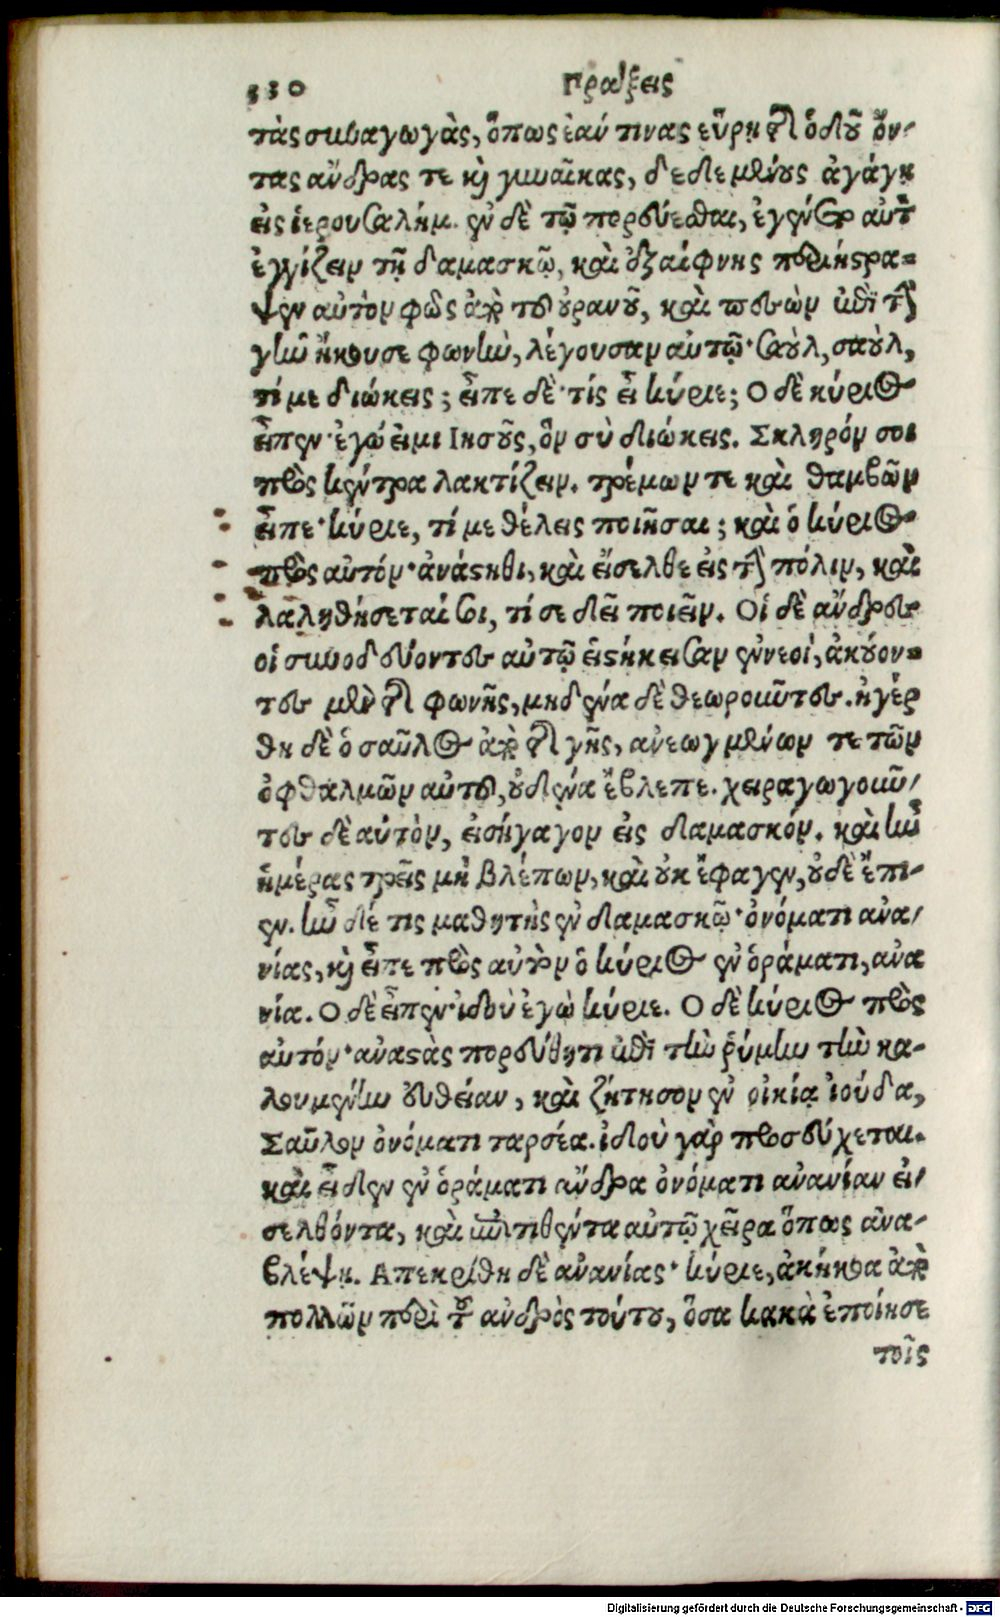 330 Πράξεις
τὰς συναγωγὰς, ὅπως ἐαν τινας εὕρῃ τῆς ὁδοῦ ὄν-
τας ἄνδρας τε καὶ γυναῖκας, δεδεμένους ἀγάγῃ
εἰς ἱερουσαλήμ. ἐν δὲ τῷ πορεύεσθαι, ἐγένετο αὐτὸν
ἐγγίζειν τῇ δαμασκῷ, καὶ ἐξαίφνης περιήστρα-
ψεν αὐτὸν φῶς ἀπὸ τοῦ οὐρανοῦ, καὶ πεσὼν ἐπὶ τὴν
γῆν ἤκουσε φωνὴν, λέγουσαν αὐτῷ· σαοὺλ, σαοὺλ,
τί με διώκεις; εἶπε δὲ· τίς εἶ κύριε; Ο δὲ κύριος
εἶπεν· ἐγώ εἰμι Ιησοῦς, ὃν σὺ διώκεις. Σκληρόν σοι
πρὸς κέντρα λακτίζειν. τρέμων τε καὶ θαμβῶν
εἶπε· κύριε, τί με θέλεις ποιῆσαι; καὶ ὁ κύριος
πρὸς αὐτόν· ἀνάστηθι, καὶ εἴσελθε εἰς τὴν πόλιν, καὶ
λαληθήσεταί σοι, τί σε δεῖ ποιεῖν. Οἱ δὲ ἄνδρες
οἱ συνοδεύοντες αὐτῷ εἱστήκεισαν ἐννεοί, ἀκούον-
τες μὲν τῆς φωνῆς, μηδένα δὲ θεωροῦντες. ἠγέρ
θη δὲ ὁ σαῦλος ἀπὸ τῆς γῆς, ἀνεωγμένων τε τῶν
ὀφθαλμῶν αὐτοῦ, οὐδένα ἔβλεπε. χειραγωγοῦν-
τες δὲ αὐτὸν, εἰσήγαγον εἰς δαμασκόν. καὶ ἦν
ἡμέρας τρεῖς μὴ βλέπων, καὶ οὐκ ἔφαγεν, οὐδὲ ἔπι-
εν. ἦν δέ τις μαθητὴς ἐν δαμασκῷ· ὀνόματι ἀνα-
νίας, καὶ εἶπε πρὸς αὐτὸν ὁ κύριος ἐν ὁράματι, ἀνα
νία. Ο δὲ εἶπεν· ἰδοὺ ἐγὼ κύριε. Ο δὲ κύριος πρὸς
αὐτόν· ἀναστὰς πορεύθητι ἐπὶ τὴν ῥύμην τὴν κα-
λουμένην εὐθεῖαν, καὶ ζήτησον ἐν οἰκίᾳ ἰούδα,
Σαῦλον ὀνόματι ταρσέα. ἰδοὺ γὰρ προσεύχεται.
καὶ εἶδεν ἐν ὁράματι ἄνδρα ὀνόματι ἀνανίαν εἰ-
σελθόντα, καὶ ἐπιτιθέντα αὐτῷ χεῖρα ὅπως ἀνα-
βλέψῃ. Απεκρίθη δὲ ἀνανίας· κύριε, ἀκήκοα ἀπὸ
πολλῶν περὶ τοῦ ἀνδρὸς τούτου, ὅσα κακὰ ἐποίησε
τοῖς
Digitalisierung gefördert durch die Deutsche Forschungsgemeinschaft - DFG